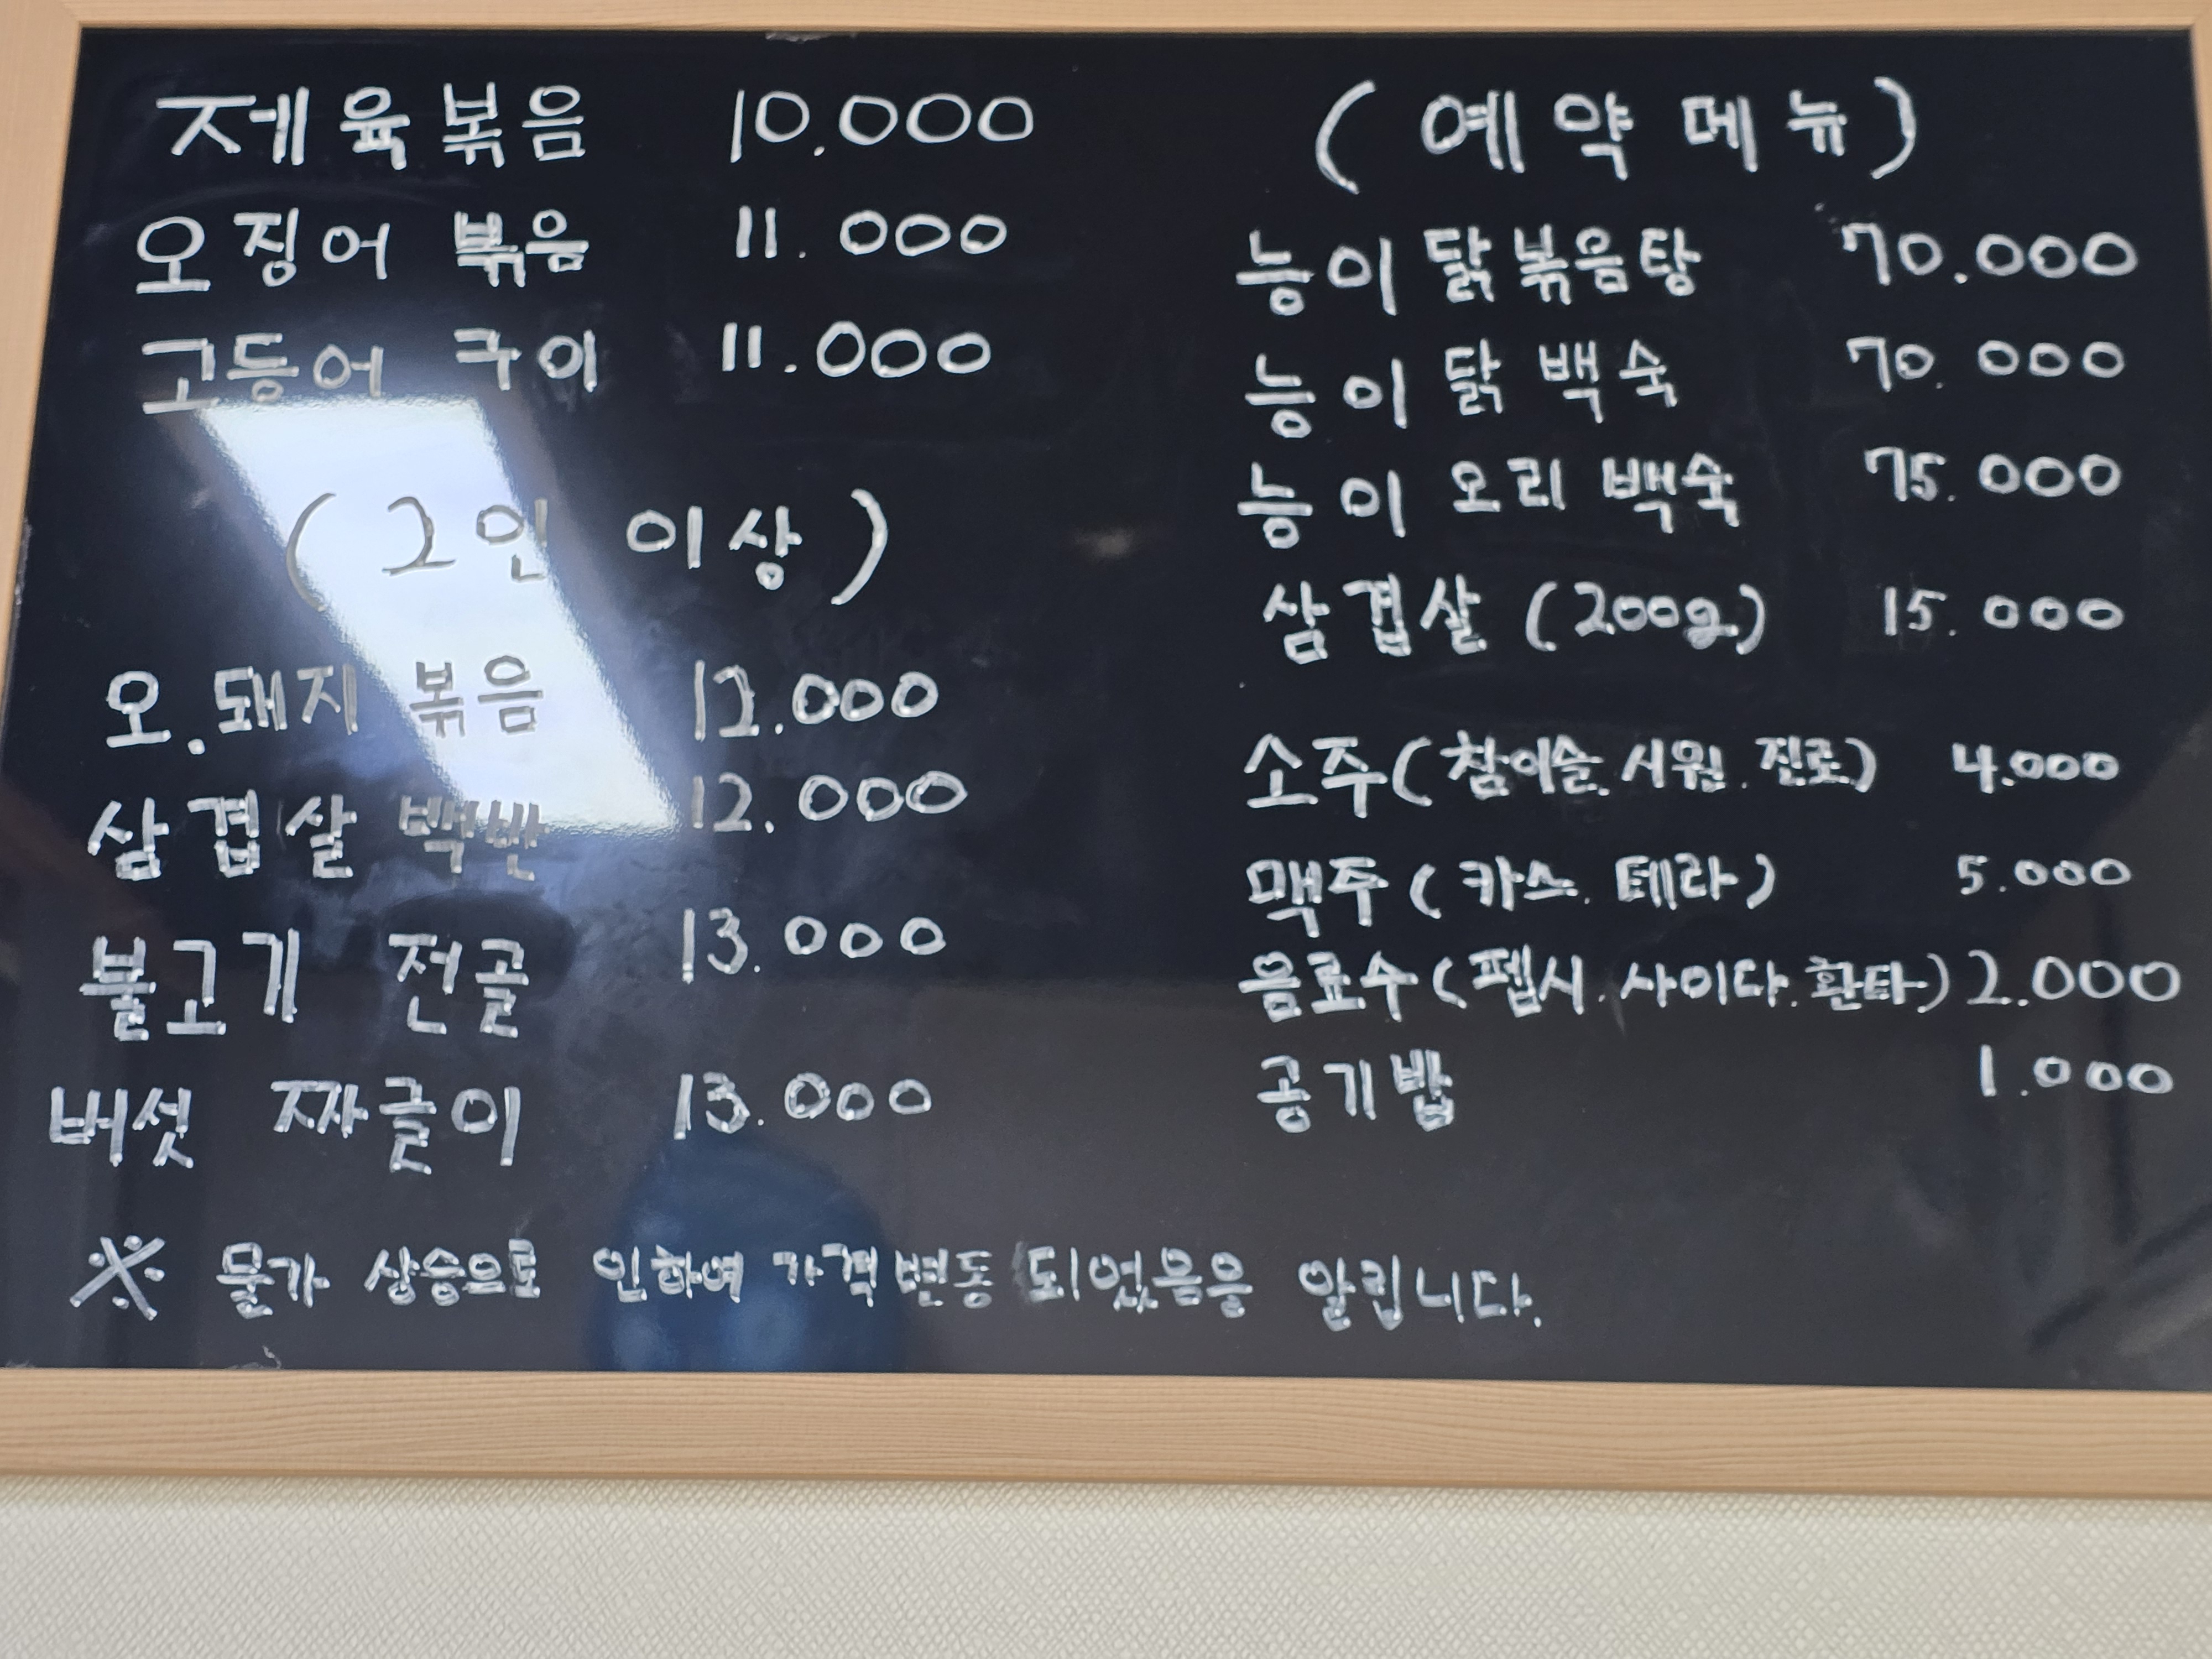 제육볶음 10.000
오징어 볶음 11.000
고등어 구이 11.000
(2인 이상)
오.돼지 볶음 12.000
삼겹살 백반 12.000
불고기 전골 13.000
버섯 짜글이 13.000
(예약메뉴)
능이 닭볶음탕 70.000
능이 닭 백숙 70.000
능이 오리 백숙 75.000
삼겹살 (200g) 15.000
소주(참이슬.시원.진로) 4.000
맥주(카스.테라) 5.000
음료수(펩시.사이다.환타) 2.000
공기밥 1.000
※ 물가 상승으로 인하여 가격변동 되었음을 알립니다.